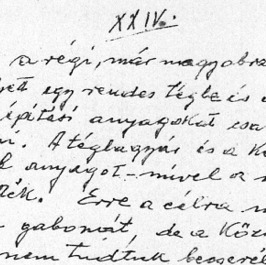 XXIV.
a régi, már nagyobra
egy rendes tégla és
építési anyagokat csa
A téglagyár és a k
anyagot - mivel a
Erre a célra
gabonát, de a Közs
nem tudtuk beszerel